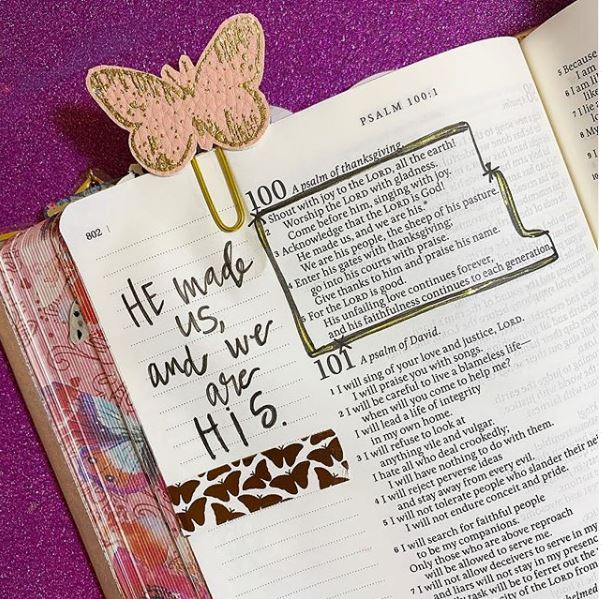 PSALM 100:1
802
HE made
us,
and we
are
HIS.
100 A psalm of thanksgiving.
1 Shout with joy to the LORD, all the earth!
2 Worship the LORD with gladness.
Come before him, singing with joy.
3 Acknowledge that the LORD is God!
He made us, and we are his.*
We are his people, the sheep of his pasture.
4 Enter his gates with thanksgiving;
go into his courts with praise.
Give thanks to him and praise his name.
5 For the LORD is good.
His unfailing love continues forever,
and his faithfulness continues to each generation.
101 A psalm of David.
1 I will sing of your love and justice, LORD.
I will praise you with songs.
2 I will be careful to live a blameless life—
when will you come to help me?
I will lead a life of integrity
in my own home.
3 I will refuse to look at
anything vile and vulgar.
I hate all who deal crookedly;
I will have nothing to do with them.
4 I will reject perverse ideas
and stay away from every evil.
5 I will not tolerate people who slander their
I will not endure conceit and pride.
6 I will search for faithful people
to be my companions.
Only those who are above reproach
will be allowed to serve me.
7 I will not allow deceivers to serve in my
and liars will not stay in my presence
task will be to ferret out the
5 Because
I am
6 I am li
like
7 I lie
8 My